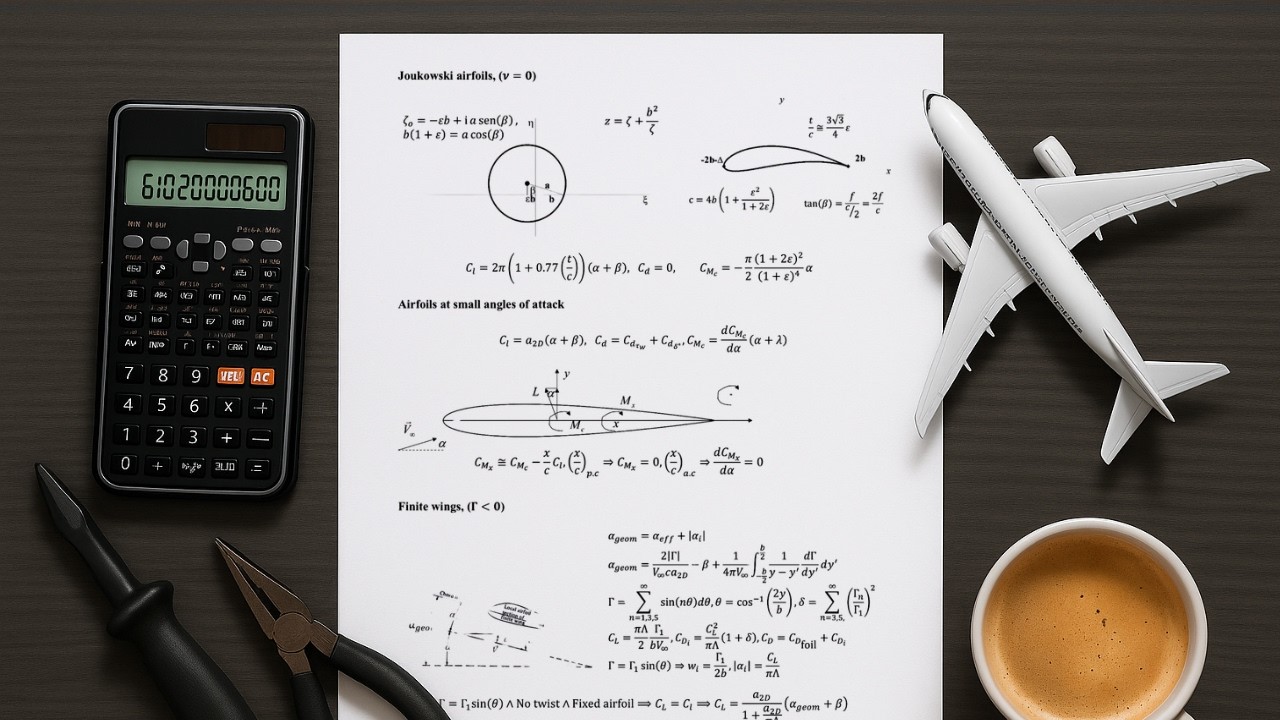 61020000600
7 8 9 AC
4 5 6 x +
1 2 3 + —
0 + =
Joukowski airfoils, (ν = 0)
ζ₀ = −εb + i a sen(β),
b(1 + ε) = a cos(β)
η
a
β
εb b
ξ
z = ζ + b²/ζ
y
t/c ≅ (3√3/4) ε
-2b-Δ
2b
x
c = 4b(1 + ε²/(1 + 2ε))
tan(β) = f/(c/2) = 2f/c
C_l = 2π(1 + 0.77(t/c))(α + β), C_d = 0, C_{M_c} = −(π/2) ((1 + 2ε)²/(1 + ε)⁴) α
Airfoils at small angles of attack
C_l = a_{2D}(α + β), C_d = C_{d_{τw}} + C_{d_{δ*}}, C_{M_c} = (dC_{M_c}/dα)(α + λ)
y
L α
M_x
M_c x
V⃗_∞ α
C_{M_x} ≅ C_{M_c} − (x/c)C_l, (x/c)_{p.c} ⇒ C_{M_x} = 0, (x/c)_{a.c} ⇒ dC_{M_x}/dα = 0
Finite wings, (Γ < 0)
α_{geom} = α_{eff} + |α_i|
α_{geom} = 2|Γ|/(V_∞ca_{2D}) − β + (1/(4πV_∞)) ∫_{−b/2}^{b/2} (1/(y − y′)) (dΓ/dy′) dy′
Γ = ∑_{n=1,3,5}^{∞} sin(nθ)dθ, θ = cos⁻¹(2y/b), δ = ∑_{n=3,5,}^{∞} (Γ_n/Γ_1)²
C_L = (πΛ/2) (Γ_1/(bV_∞)), C_{D_i} = (C_L²/(πΛ))(1 + δ), C_D = C_{D_foil} + C_{D_i}
Γ = Γ_1 sin(θ) ⇒ w_i = Γ_1/(2b), |α_i| = C_L/(πΛ)
Local airfoil
finite wing
α
Γ = Γ_1 sin(θ) ∧ No twist ∧ Fixed airfoil ⟹ C_L = C_l ⟹ C_L = (a_{2D}/(1 + a_{2D}/(πΛ)))(α_{geom} + β)